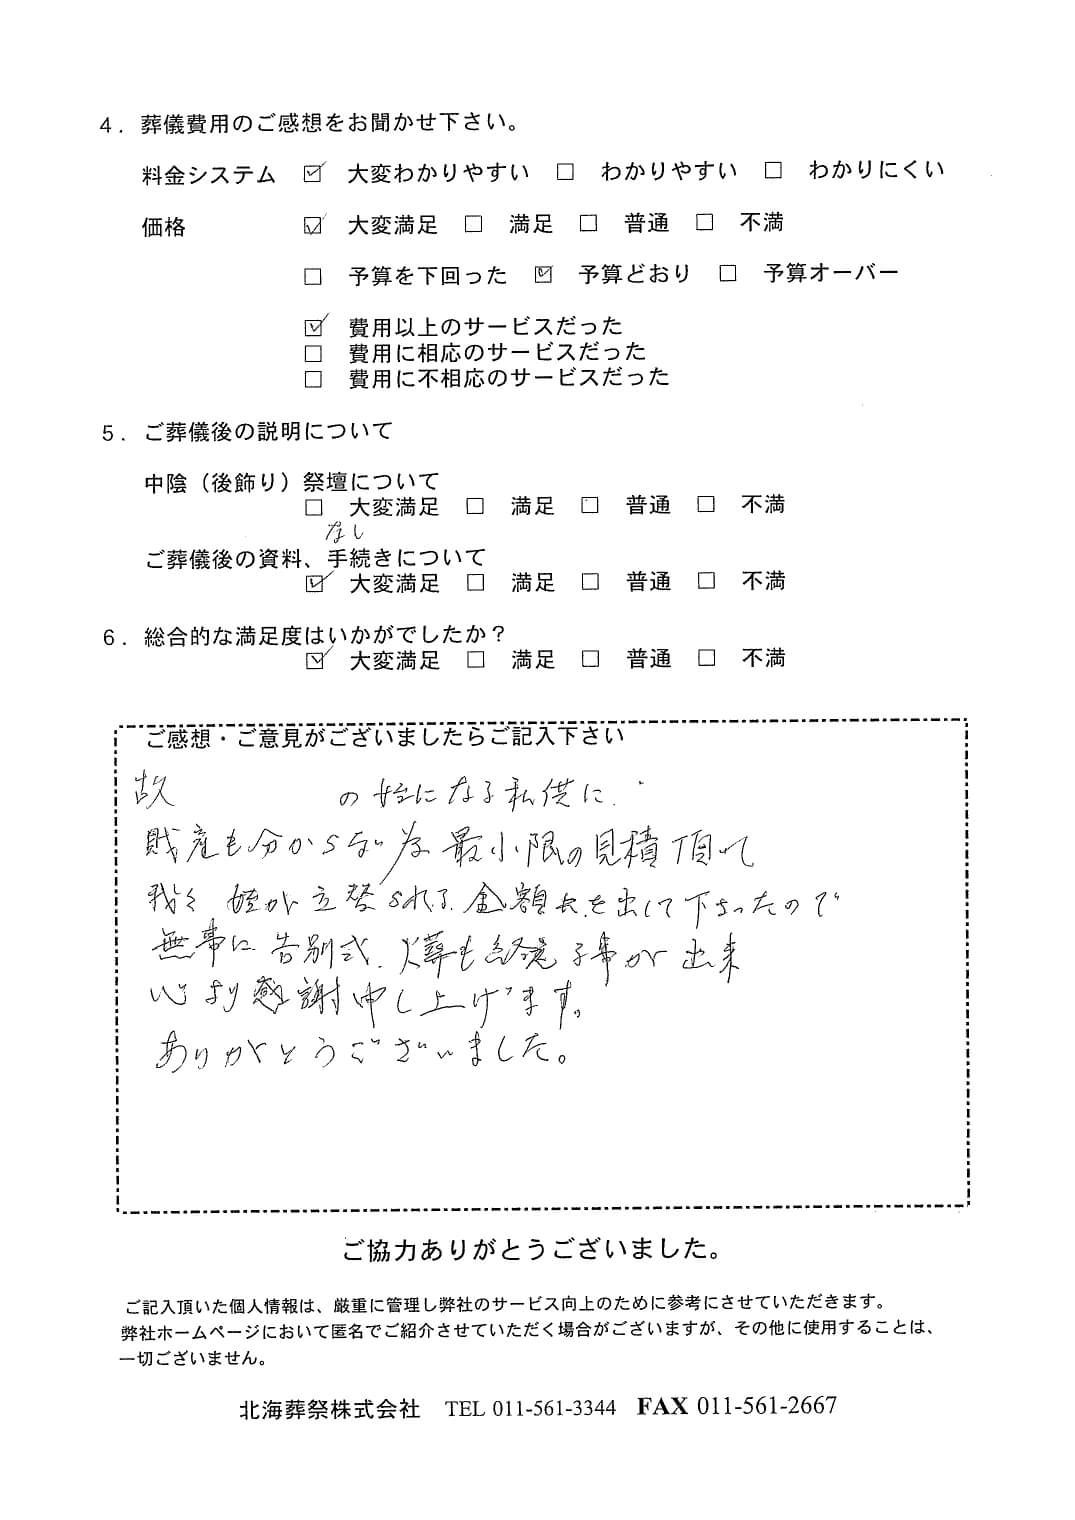 4．葬儀費用のご感想をお聞かせ下さい。
料金システム ☑ 大変わかりやすい □ わかりやすい □ わかりにくい
価格 ☑ 大変満足 □ 満足 □ 普通 □ 不満
□ 予算を下回った ☑ 予算どおり □ 予算オーバー
☑ 費用以上のサービスだった
□ 費用に相応のサービスだった
□ 費用に不相応のサービスだった
5．ご葬儀後の説明について
中陰（後飾り）祭壇について
□ 大変満足 □ 満足 □ 普通 □ 不満
なし
ご葬儀後の資料、手続きについて
☑ 大変満足 □ 満足 □ 普通 □ 不満
6．総合的な満足度はいかがでしたか？
☑ 大変満足 □ 満足 □ 普通 □ 不満
ご感想・ご意見がございましたらご記入下さい
故 の になる私供に
財産も分からない為 最小限の見積頂いて
我々 が立替られる 金額 を出して下さったので
無事に 告別式、火葬も 事が出来
心より感謝申し上げます。
ありがとうございました。
ご協力ありがとうございました。
ご記入頂いた個人情報は、厳重に管理し弊社のサービス向上のために参考にさせていただきます。
弊社ホームページにおいて匿名でご紹介させていただく場合がございますが、その他に使用することは、
一切ございません。
北海葬祭株式会社 TEL 011-561-3344 FAX 011-561-2667